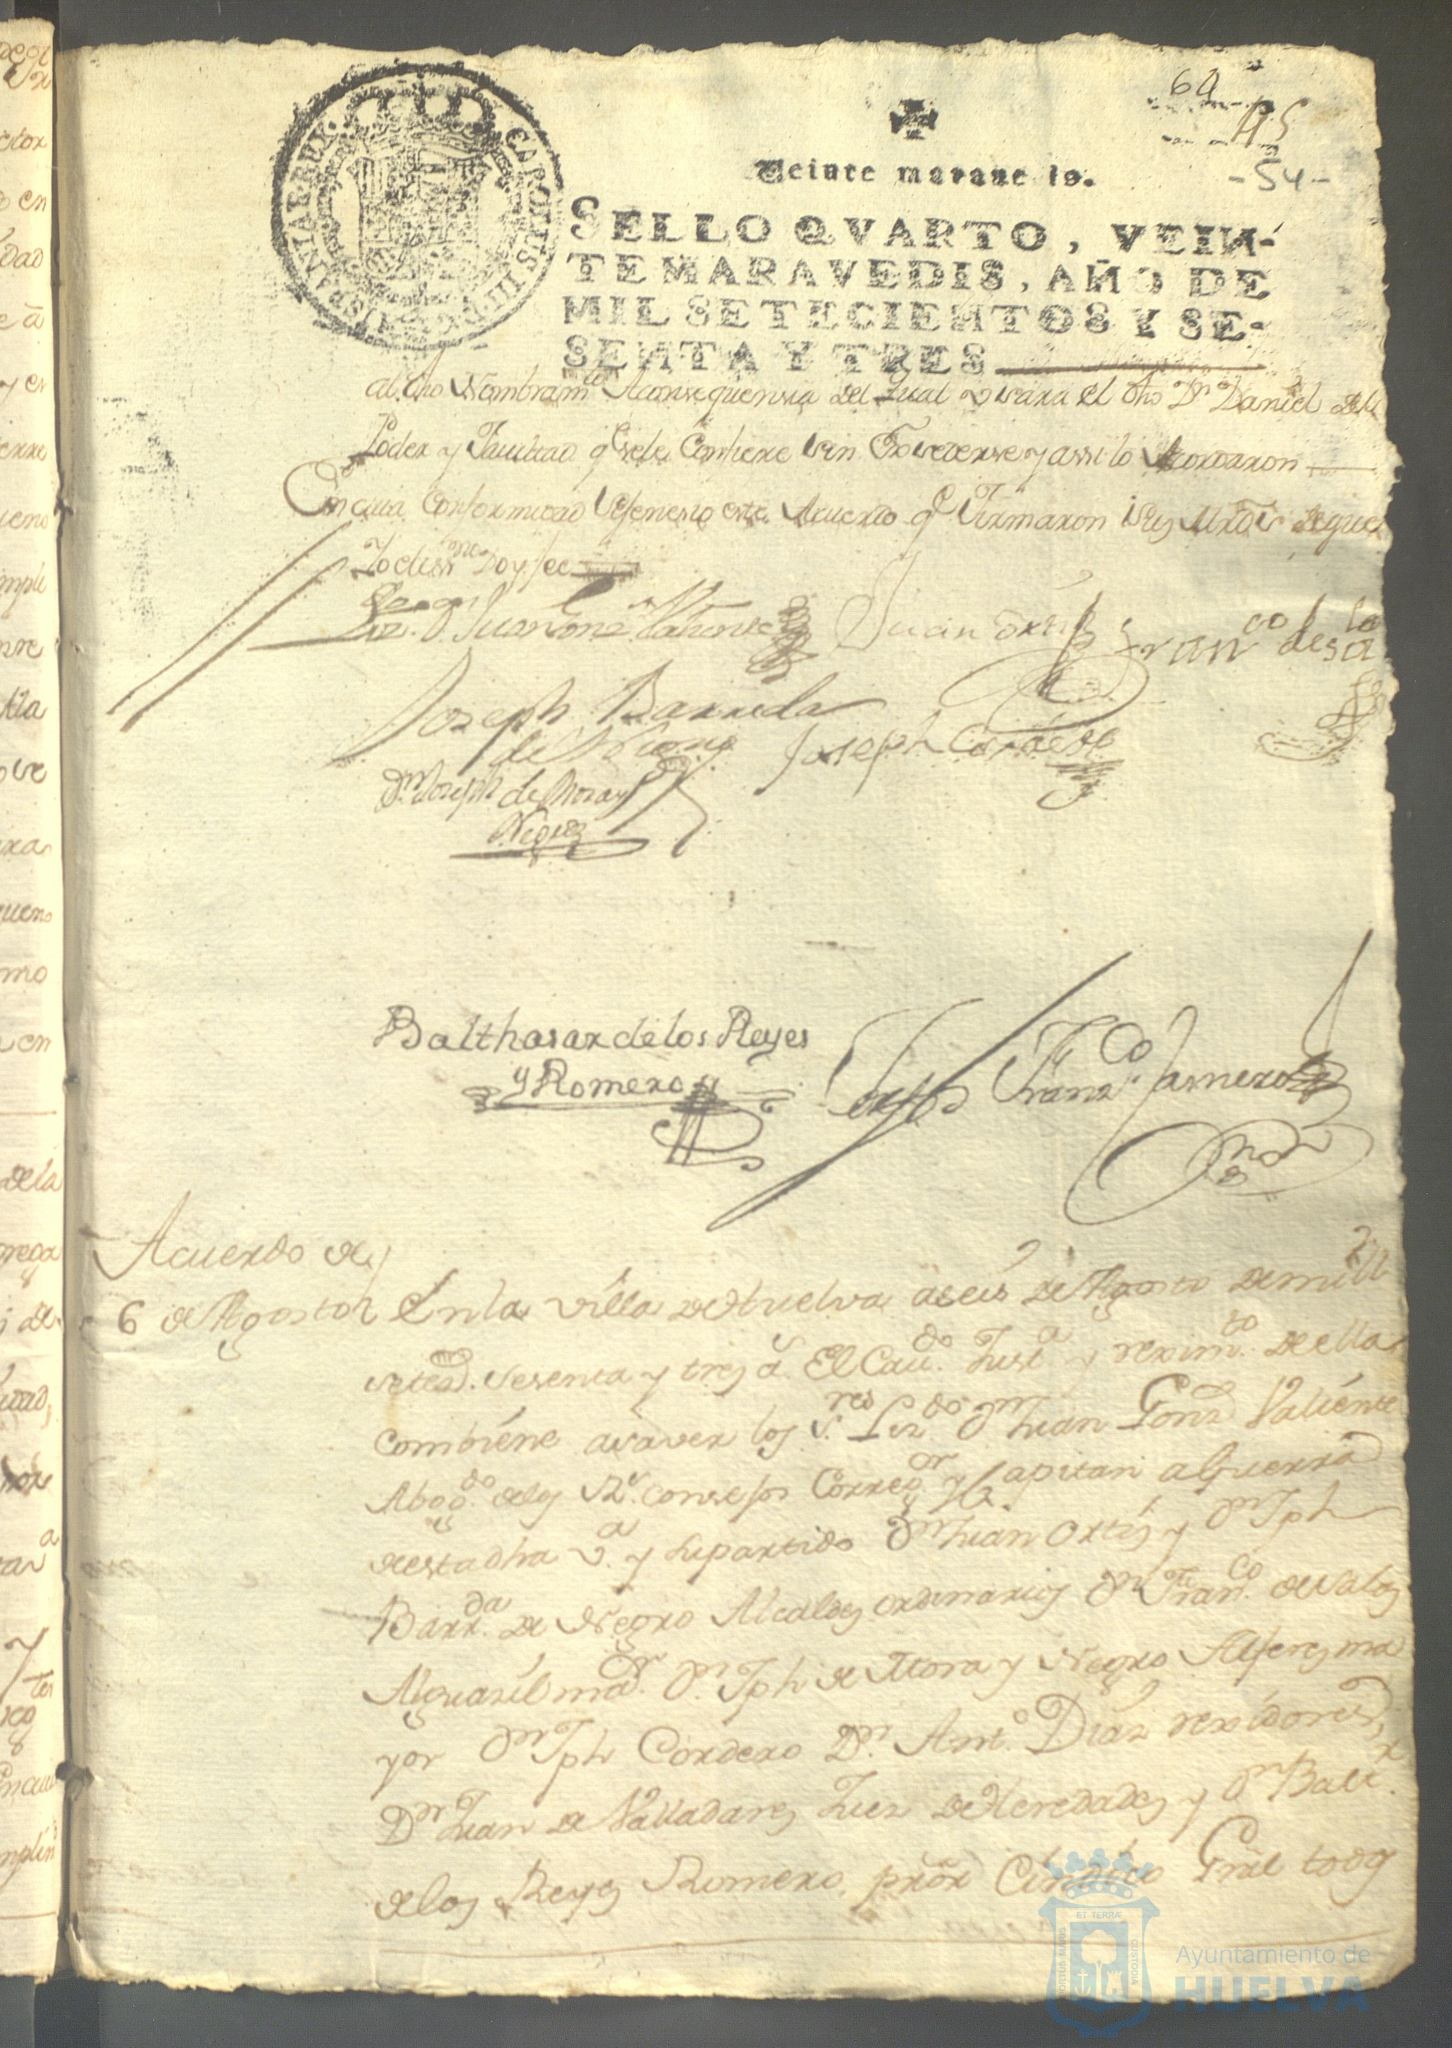 60
45
-54-
CAROLUS III D G HISPANIAR REX
Veinte maraue is.
SELLO QVARTO, VEIN-
TE MARAVEDIS, AÑO DE
MIL SETECIENTOS Y SE-
SENTA Y TRES
al dho Nombramto Aconsequensia del Qual vsara el dho Dn Daniel del
Poder y Facultad q sele Confiere sin Exsederse y assi lo Acordaron
En cuia Conformidad sefenesio este Acuerdo qe Firmaron sus Mrds deque
Yo el ssno Doy fee
Liz. Dn Juan Gonz Valiente
Juan Ortis
Franco de sala
Joseph Barreda
de Negro
Joseph Cordero
Dn Joseph de Mora y
Negro
Balthasar de los Reyes
y Romero
Franzco Jasnero
Acuerdo de
6 de Agosto
En la villa de Huelva a seis de Agosto de mill
setesd. sesenta y tres as. El Caudo. Justa y reximto. de ella
combiéne a saver los Sres Lizdo Dn Juan Gonzd Valiénte
Abogdo. de los Rs. consejos Corregor y Capitan a Guerra
de esta dha va. y su partido Dn Juan Ortis y Dn Jph
Barrda. de Negro Alcaldes ordinarios Dn Franco. de Salas
Alguasíl mor. Dn. Jph de Mora y Negro Alferes ma
yor Dn Jph Cordero Dn. Anto. Díaz rexidores
Dn Juan de Valladares Juez de Heredades y Dn Baltr.
de los Reyes Romero, pror Cindico Gral todos
ET TERRÆ
PORTUS MARIS
CUSTODIA
Ayuntamiento de
HUELVA